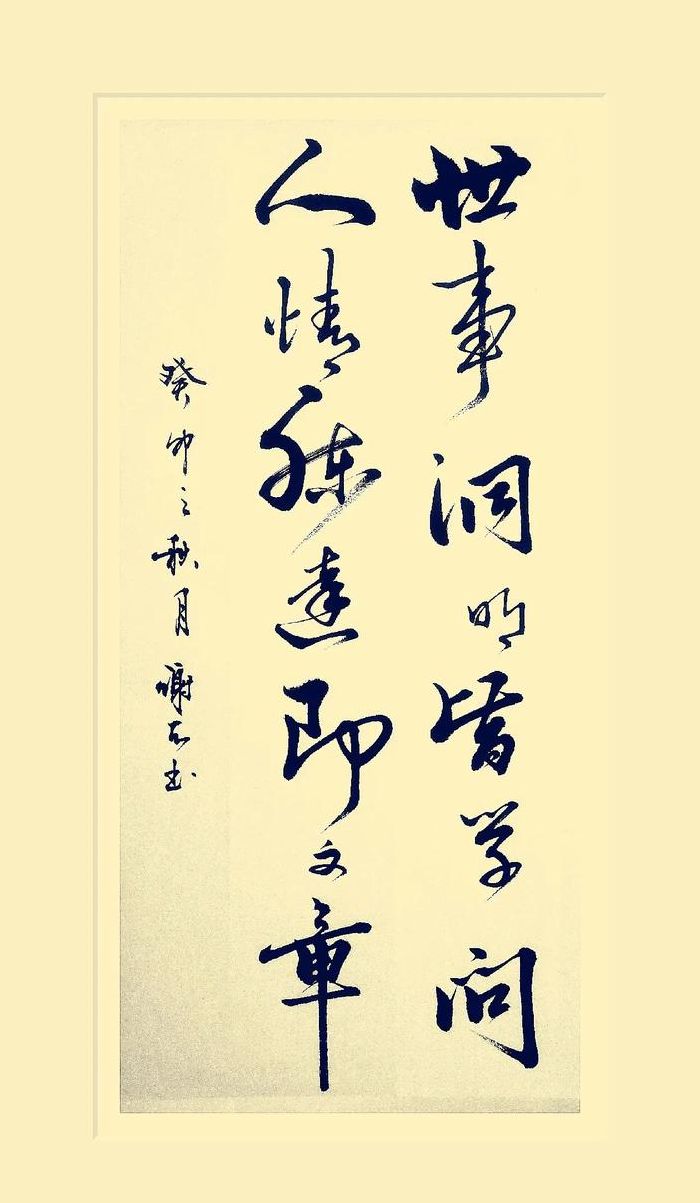 世事洞明皆学问
人情练達即文章
癸卯之秋月 谢书